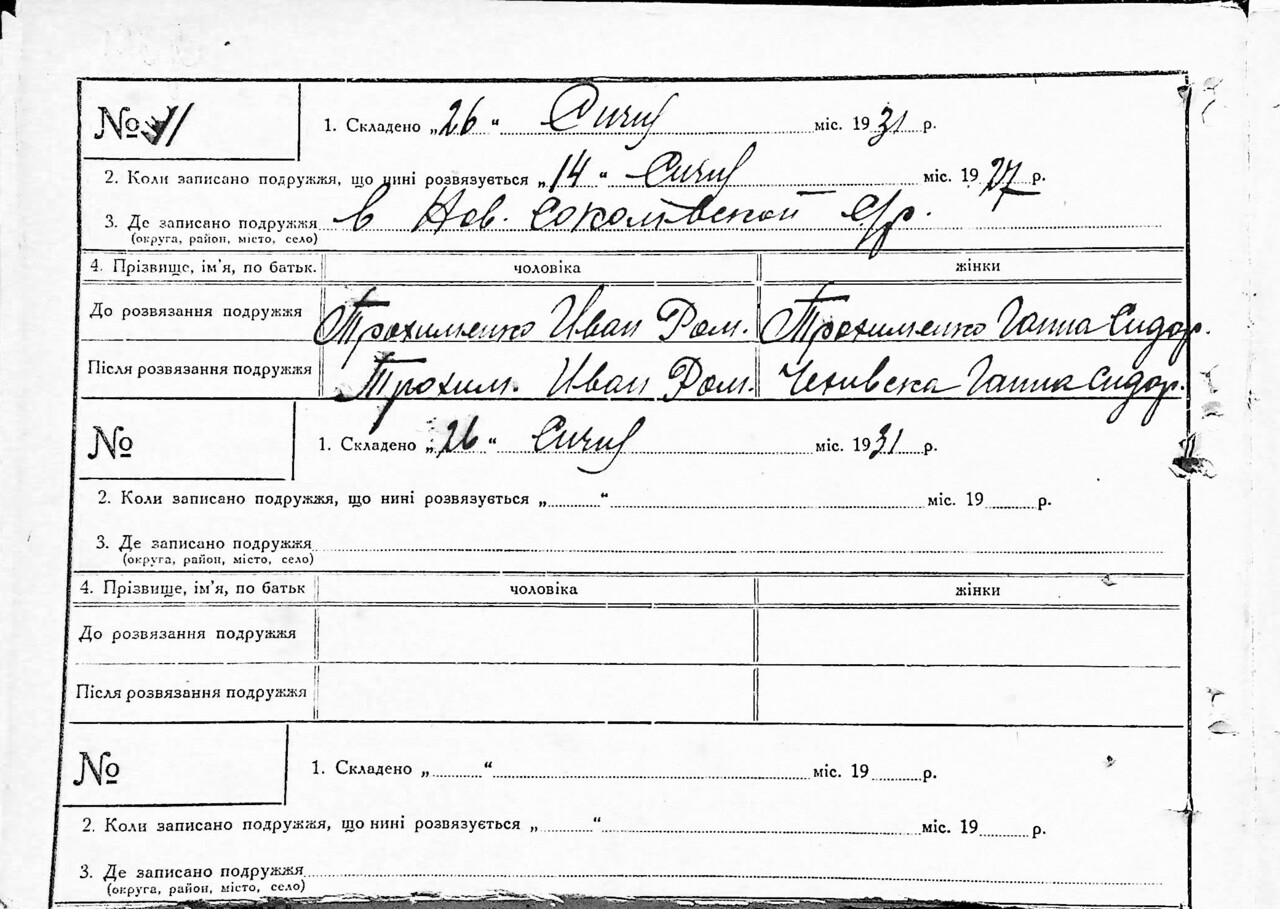 № 11 1. Складено „26“ Сичня міс. 1931 р.
2. Коли записано подружжя, що нині розвязується „14“ Сичня міс. 1927 р.
3. Де записано подружжя в Нов. Соколовской с/р.
(округа, район, місто, село)
4. Прізвище, ім’я, по батьк. чоловіка жінки
До розвязання подружжя Трохименко Иван Ром. Трохименко Ганна Сидор.
Після розвязання подружжя Трохим. Иван Ром. Ганна Сидор.
№ 1. Складено „26“ Сичня міс. 1931 р.
2. Коли записано подружжя, що нині розвязується „ “ міс. 19 р.
3. Де записано подружжя
(округа, район, місто, село)
4. Прізвище, ім’я, по батьк чоловіка жінки
До розвязання подружжя
Після розвязання подружжя
№ 1. Складено „ “ міс. 19 р.
2. Коли записано подружжя, що нині розвязується „ “ міс. 19 р.
3. Де записано подружжя
(округа, район, місто, село)